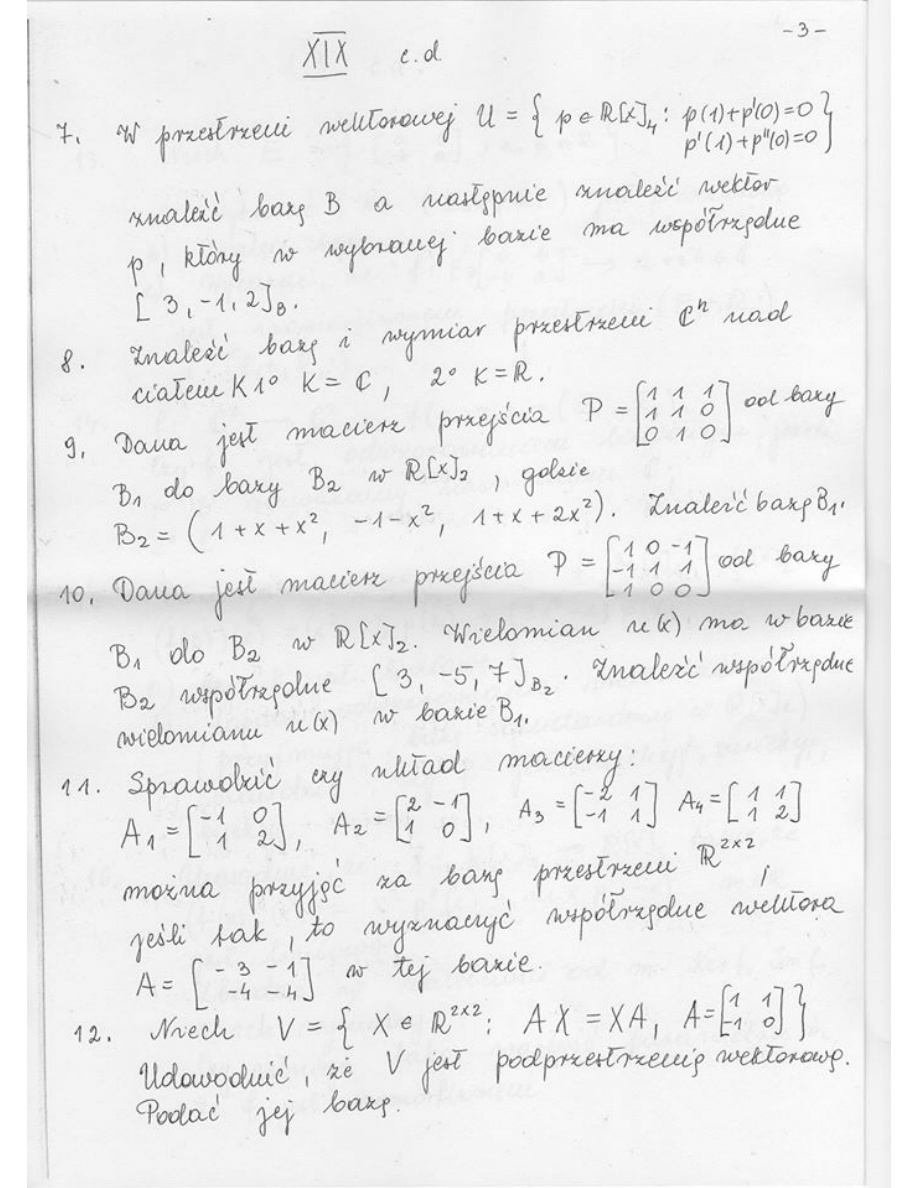 -3-
XIX c.d.
7. W przestrzeni wektorowej U = { p ∈ ℝ[x]₄ : p(1)+p'(0)=0
p'(1)+p''(0)=0 }
znaleźć bazę B a następnie znaleźć wektor
p, który w wybranej bazie ma współrzędne
[3, -1, 2]_B.
8. Znaleźć bazę i wymiar przestrzeni ℂⁿ nad
ciałem K 1° K = ℂ, 2° K = ℝ.
9. Dana jest macierz przejścia P = [1 1 1; 1 1 0; 0 1 0] od bazy
B₁ do bazy B₂ w ℝ[x]₂, gdzie
B₂ = (1+x+x², -1-x², 1+x+2x²). Znaleźć bazę B₁.
10. Dana jest macierz przejścia P = [1 0 -1; -1 1 1; -1 0 0] od bazy
B₁ do B₂ w ℝ[x]₂. Wielomian u(x) ma w bazie
B₂ współrzędne [3, -5, 7]_B₂. Znaleźć współrzędne
wielomianu u(x) w bazie B₁.
11. Sprawdzić czy układ macierzy:
A₁ = [-1 0; 1 2], A₂ = [2 -1; 1 0], A₃ = [-2 1; -1 1] A₄ = [1 1; 1 2]
można przyjąć za bazę przestrzeni ℝ²ˣ²,
jeśli tak, to wyznaczyć współrzędne wektora
A = [-3 -1; -4 -4] w tej bazie.
12. Niech V = { X ∈ ℝ²ˣ² : AX = XA, A = [1 1; -1 0] }
Udowodnić, że V jest podprzestrzenią wektorową.
Podać jej bazę.